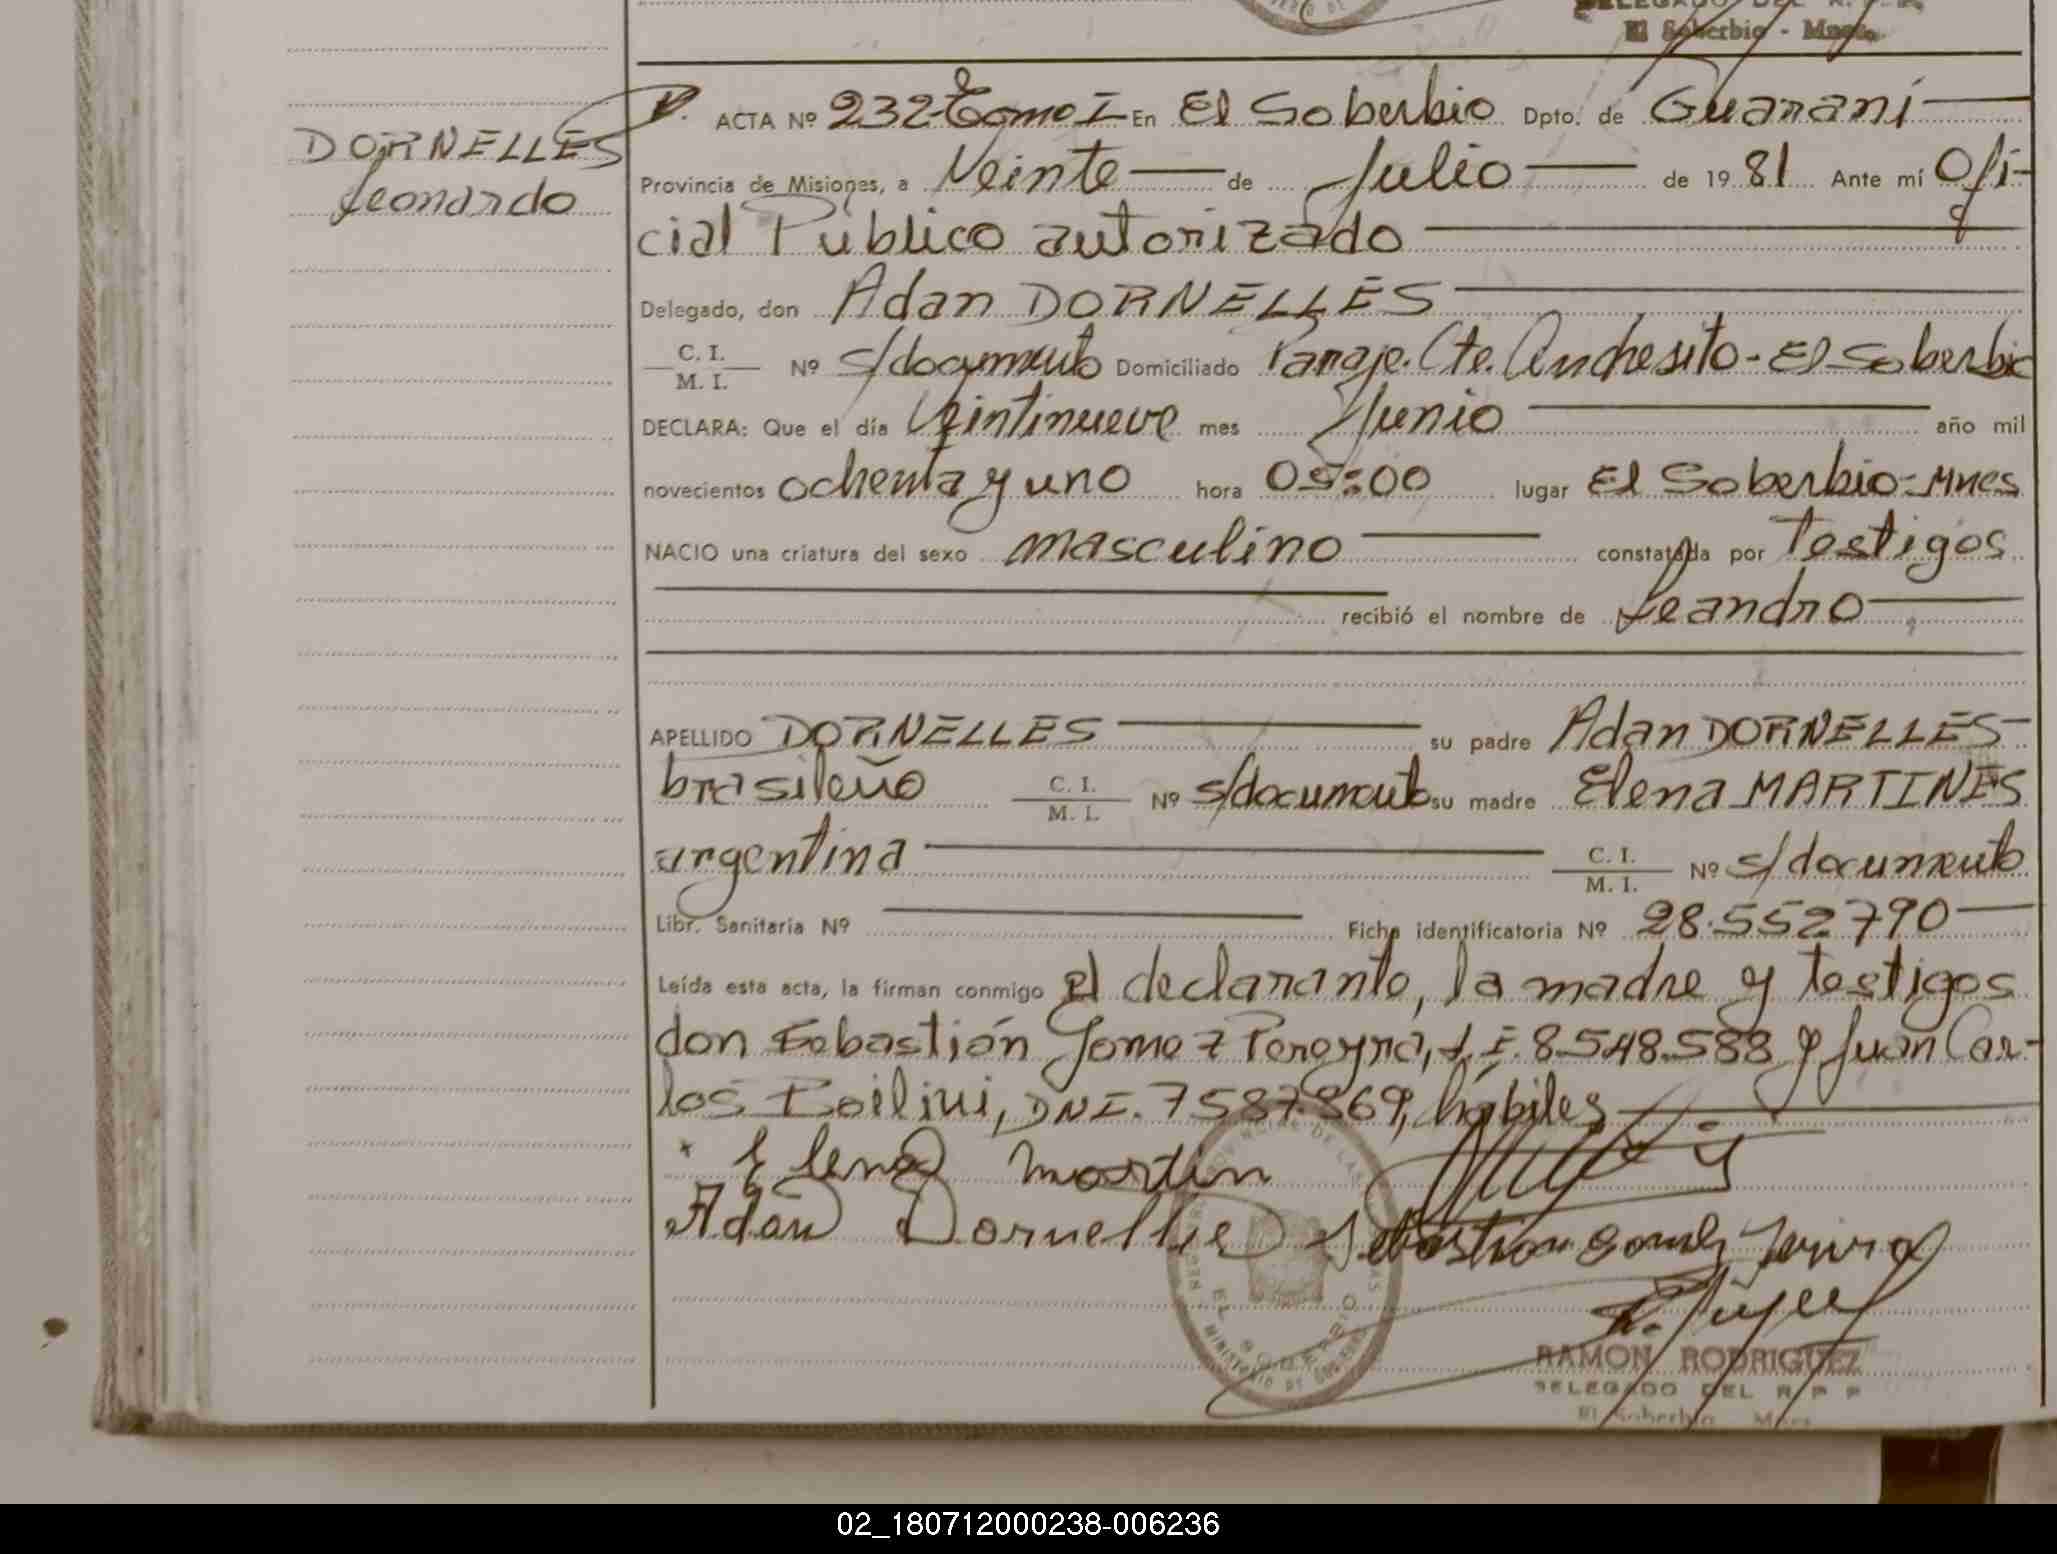 DELEGADO DEL R. P. P.
El Soberbio - Mnes.
DORNELLES
Leonardo
ACTA Nº 232-Tomo I En El Soberbio Dpto. de Guaraní
Provincia de Misiones, a Veinte de Julio de 1981 Ante mí Ofi-
cial Publico autorizado
Delegado, don Adan DORNELLES
C. I.
M. I. Nº s/documento Domiciliado Paraje. Cte. Andresito - El Soberbio
DECLARA: Que el día Veintinueve mes Junio año mil
novecientos ochenta y uno hora 05:00 lugar El Soberbio-Mnes
NACIO una criatura del sexo masculino constatada por Testigos
recibió el nombre de Leandro
APELLIDO DORNELLES su padre Adan DORNELLES
brasileño C. I.
M. I. Nº s/documento su madre Elena MARTINES
argentina C. I.
M. I. Nº s/documento
Libr. Sanitaria Nº Ficha identificatoria Nº 28.552790
Leída esta acta, la firman conmigo el declarante, la madre y testigos
don Sebastián Gomez Pereyra, L.E. 8.548.588 y Juan Car-
los DNI. 7587869, hábiles
x Elena martin
Adan Dornelles Sebastian Gomez
EL SOBERBIO
MINISTERIO DE GOBIERNO
RAMON RODRIGUEZ
DELEGADO DEL R P P
El Soberbio Mnes
02_180712000238-006236